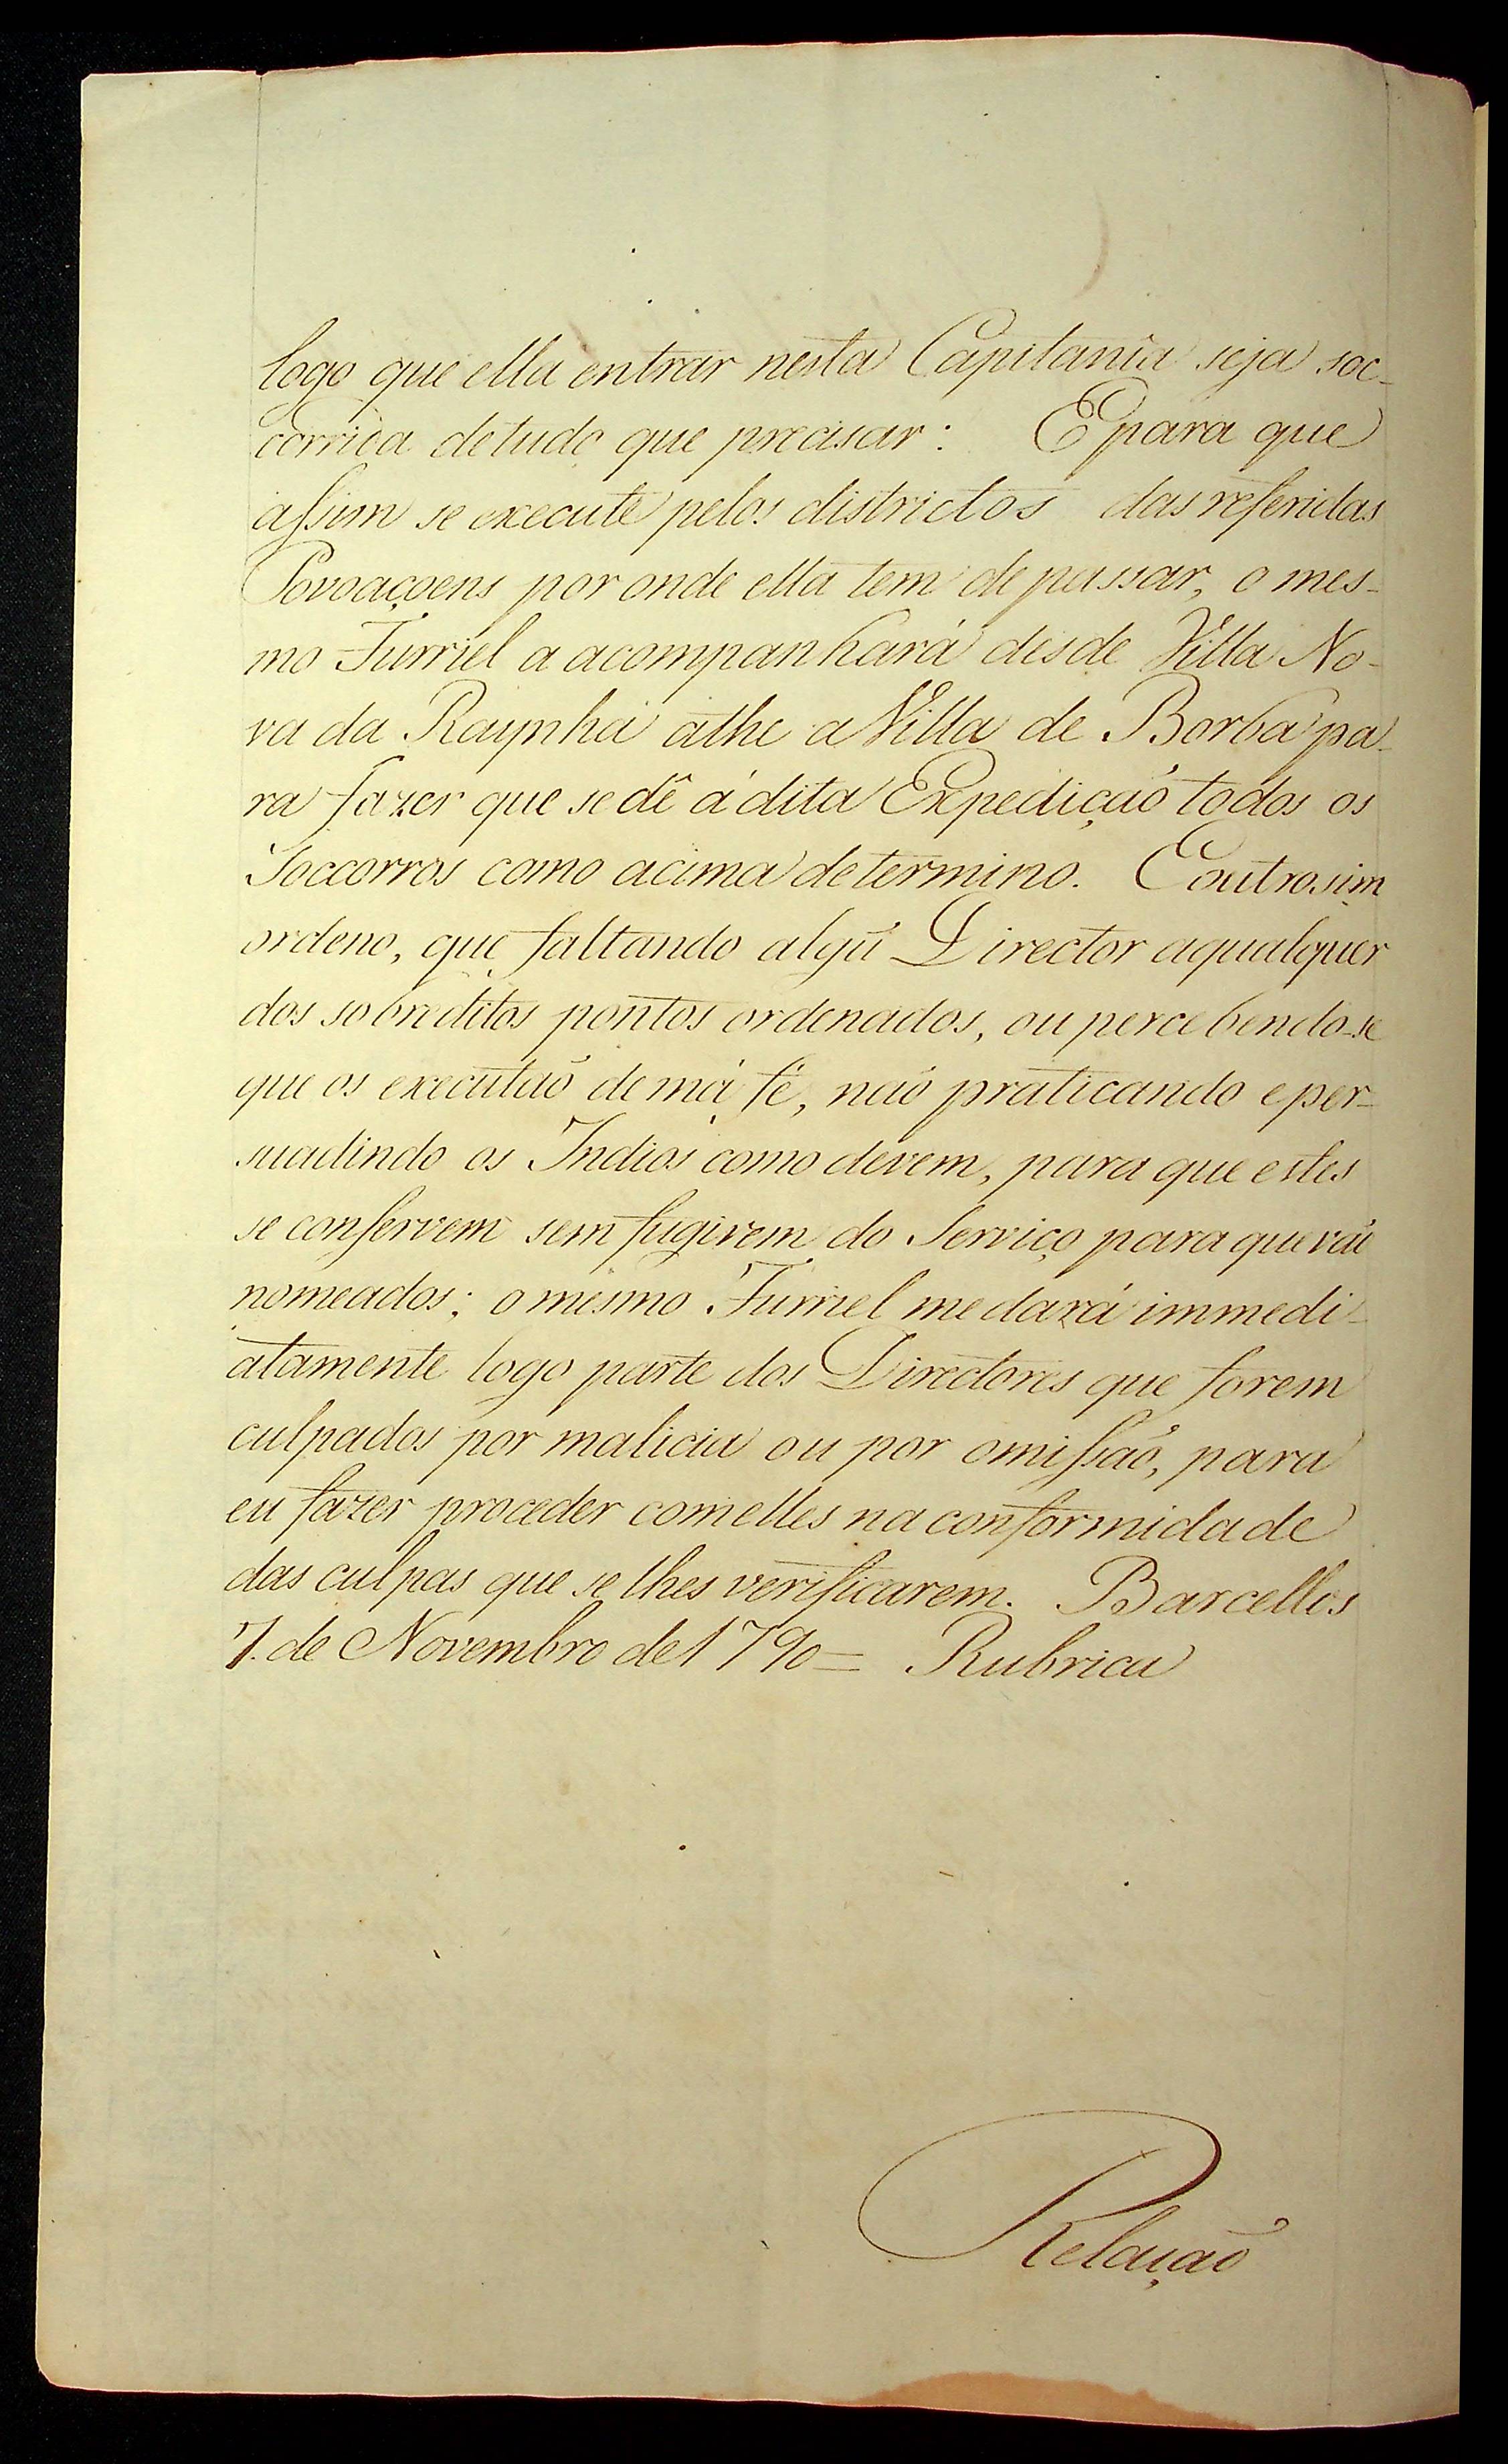 logo que ella entrar nesta Capitania seja soc-
corrida detudo que precisar: E para que
assim se execute pelos districtos das referidas
Povoaçoens por onde ella tem de passar, o mes-
mo Furriel a acompanhará desde Villa No-
va da Raynha athe a Villa de Borba pa-
ra fazer que se dê á dita Expedição todos os
Soccorros como acima determino. E outrosim
ordeno, que faltando algũ Director aqualquer
dos sobreditos pontos ordenados, ou percebendo-se
que os executaõ de má fé, naõ praticando e per-
suadindo os Indios como devem, para que estes
se conservem sem fugirem do Serviço para que vaõ
nomeados; o mesmo Furriel me dará immedi-
atamente logo parte dos Directores que forem
culpados por malicia ou por omissaõ, para
eu fazer proceder com elles na conformidade
das culpas que se lhes verificarem. Barcellos
7. de Novembro de 1790 = Rubrica
Relaçaõ